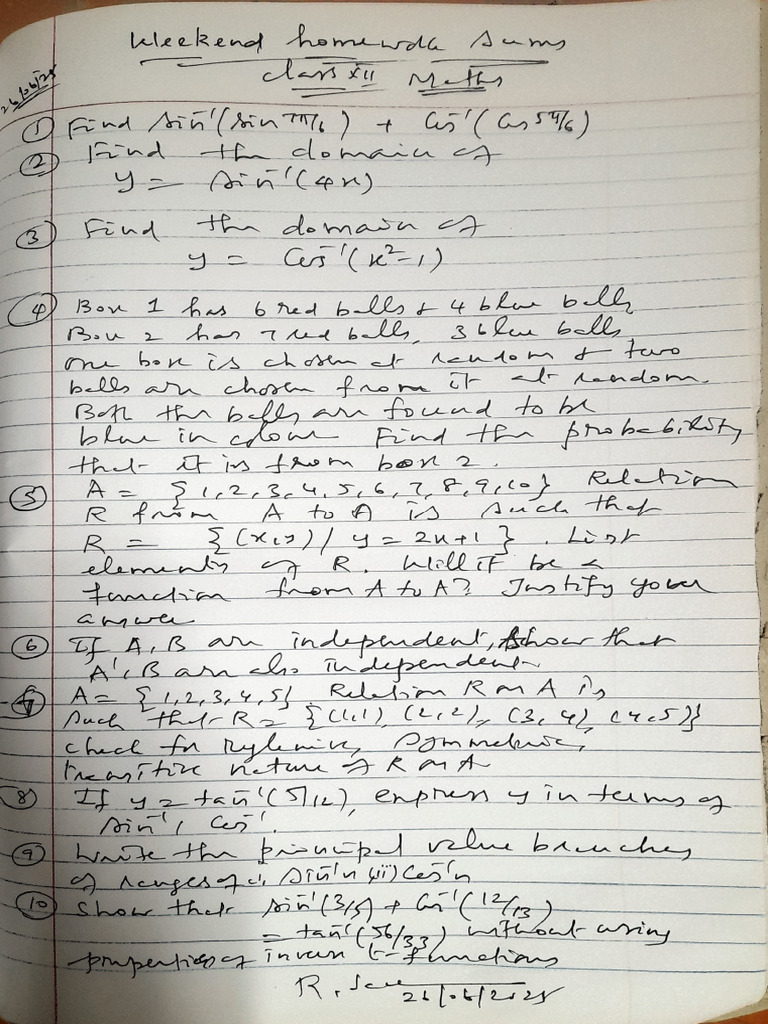 26/06/25
Weekend homework Sums
Class XII Maths
① Find sin⁻¹(sin 7π/6) + cos⁻¹(cos 5π/6)
② Find the domain of
y = sin⁻¹(4x)
③ Find the domain of
y = cos⁻¹(x²-1)
④ Box 1 has 6 red balls & 4 blue balls
Box 2 has 7 red balls, 3 blue balls
one box is chosen at random & two
balls are chosen from it at random.
Both the balls are found to be
blue in colour Find the probability
that it is from box 2.
⑤ A = {1,2,3,4,5,6,7,8,9,10} Relation
R from A to A is such that
R = {(x,y) / y = 2x+1}. List
elements of R. Will it be a
function from A to A? Justify your
answer
⑥ If A, B are independent, show that
A', B are also independent.
⑦ A = {1,2,3,4,5} Relation R on A is
such that R = {(1,1), (2,2), (3,4), (4,5)}
check for reflexive, symmetric,
transitive nature of R on A
⑧ If y = tan⁻¹(5/12), express y in terms of
sin⁻¹, cos⁻¹.
⑨ Write the principal value branches
of ranges of i, sin⁻¹x (ii) cos⁻¹x
⑩ Show that sin⁻¹(3/5) + cos⁻¹(12/13)
= tan⁻¹(56/33) without using
properties of inverse t-functions
R.
26/06/2025